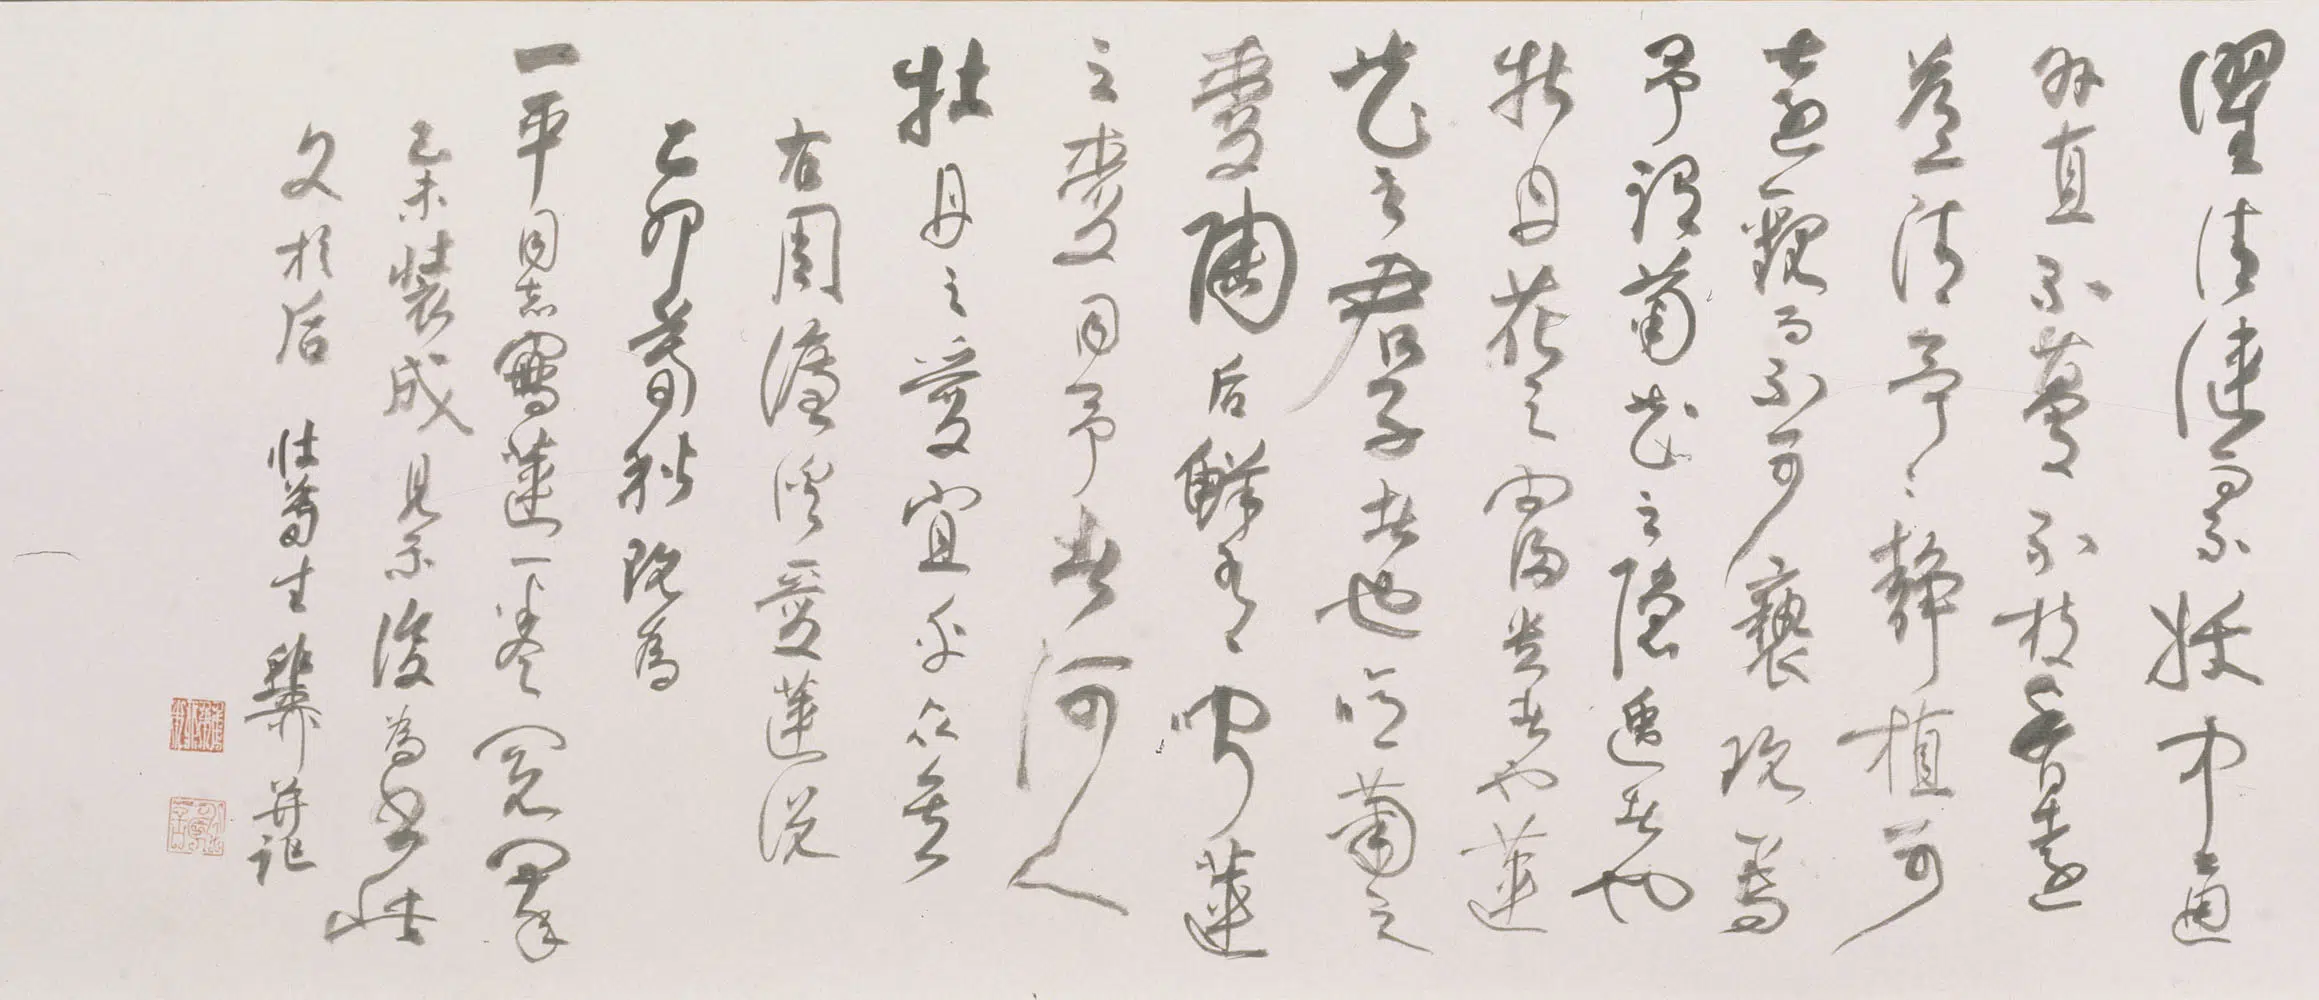 濯清漣而不妖中通
外直不蔓不枝香遠
益清亭々靜植可
遠觀而不可褻玩焉
予謂菊花之隱逸者也
牡丹花之富貴者也蓮
花之君子者也噫菊之
愛陶后鮮有聞蓮
之愛同予者何人
牡丹之愛宜乎众矣
右周濂溪愛蓮說
乙卯暮秋既為
一平同志寫蓮一卷閱四年
己未裝成見示復為書此
文於后 壯暮生稚柳并記